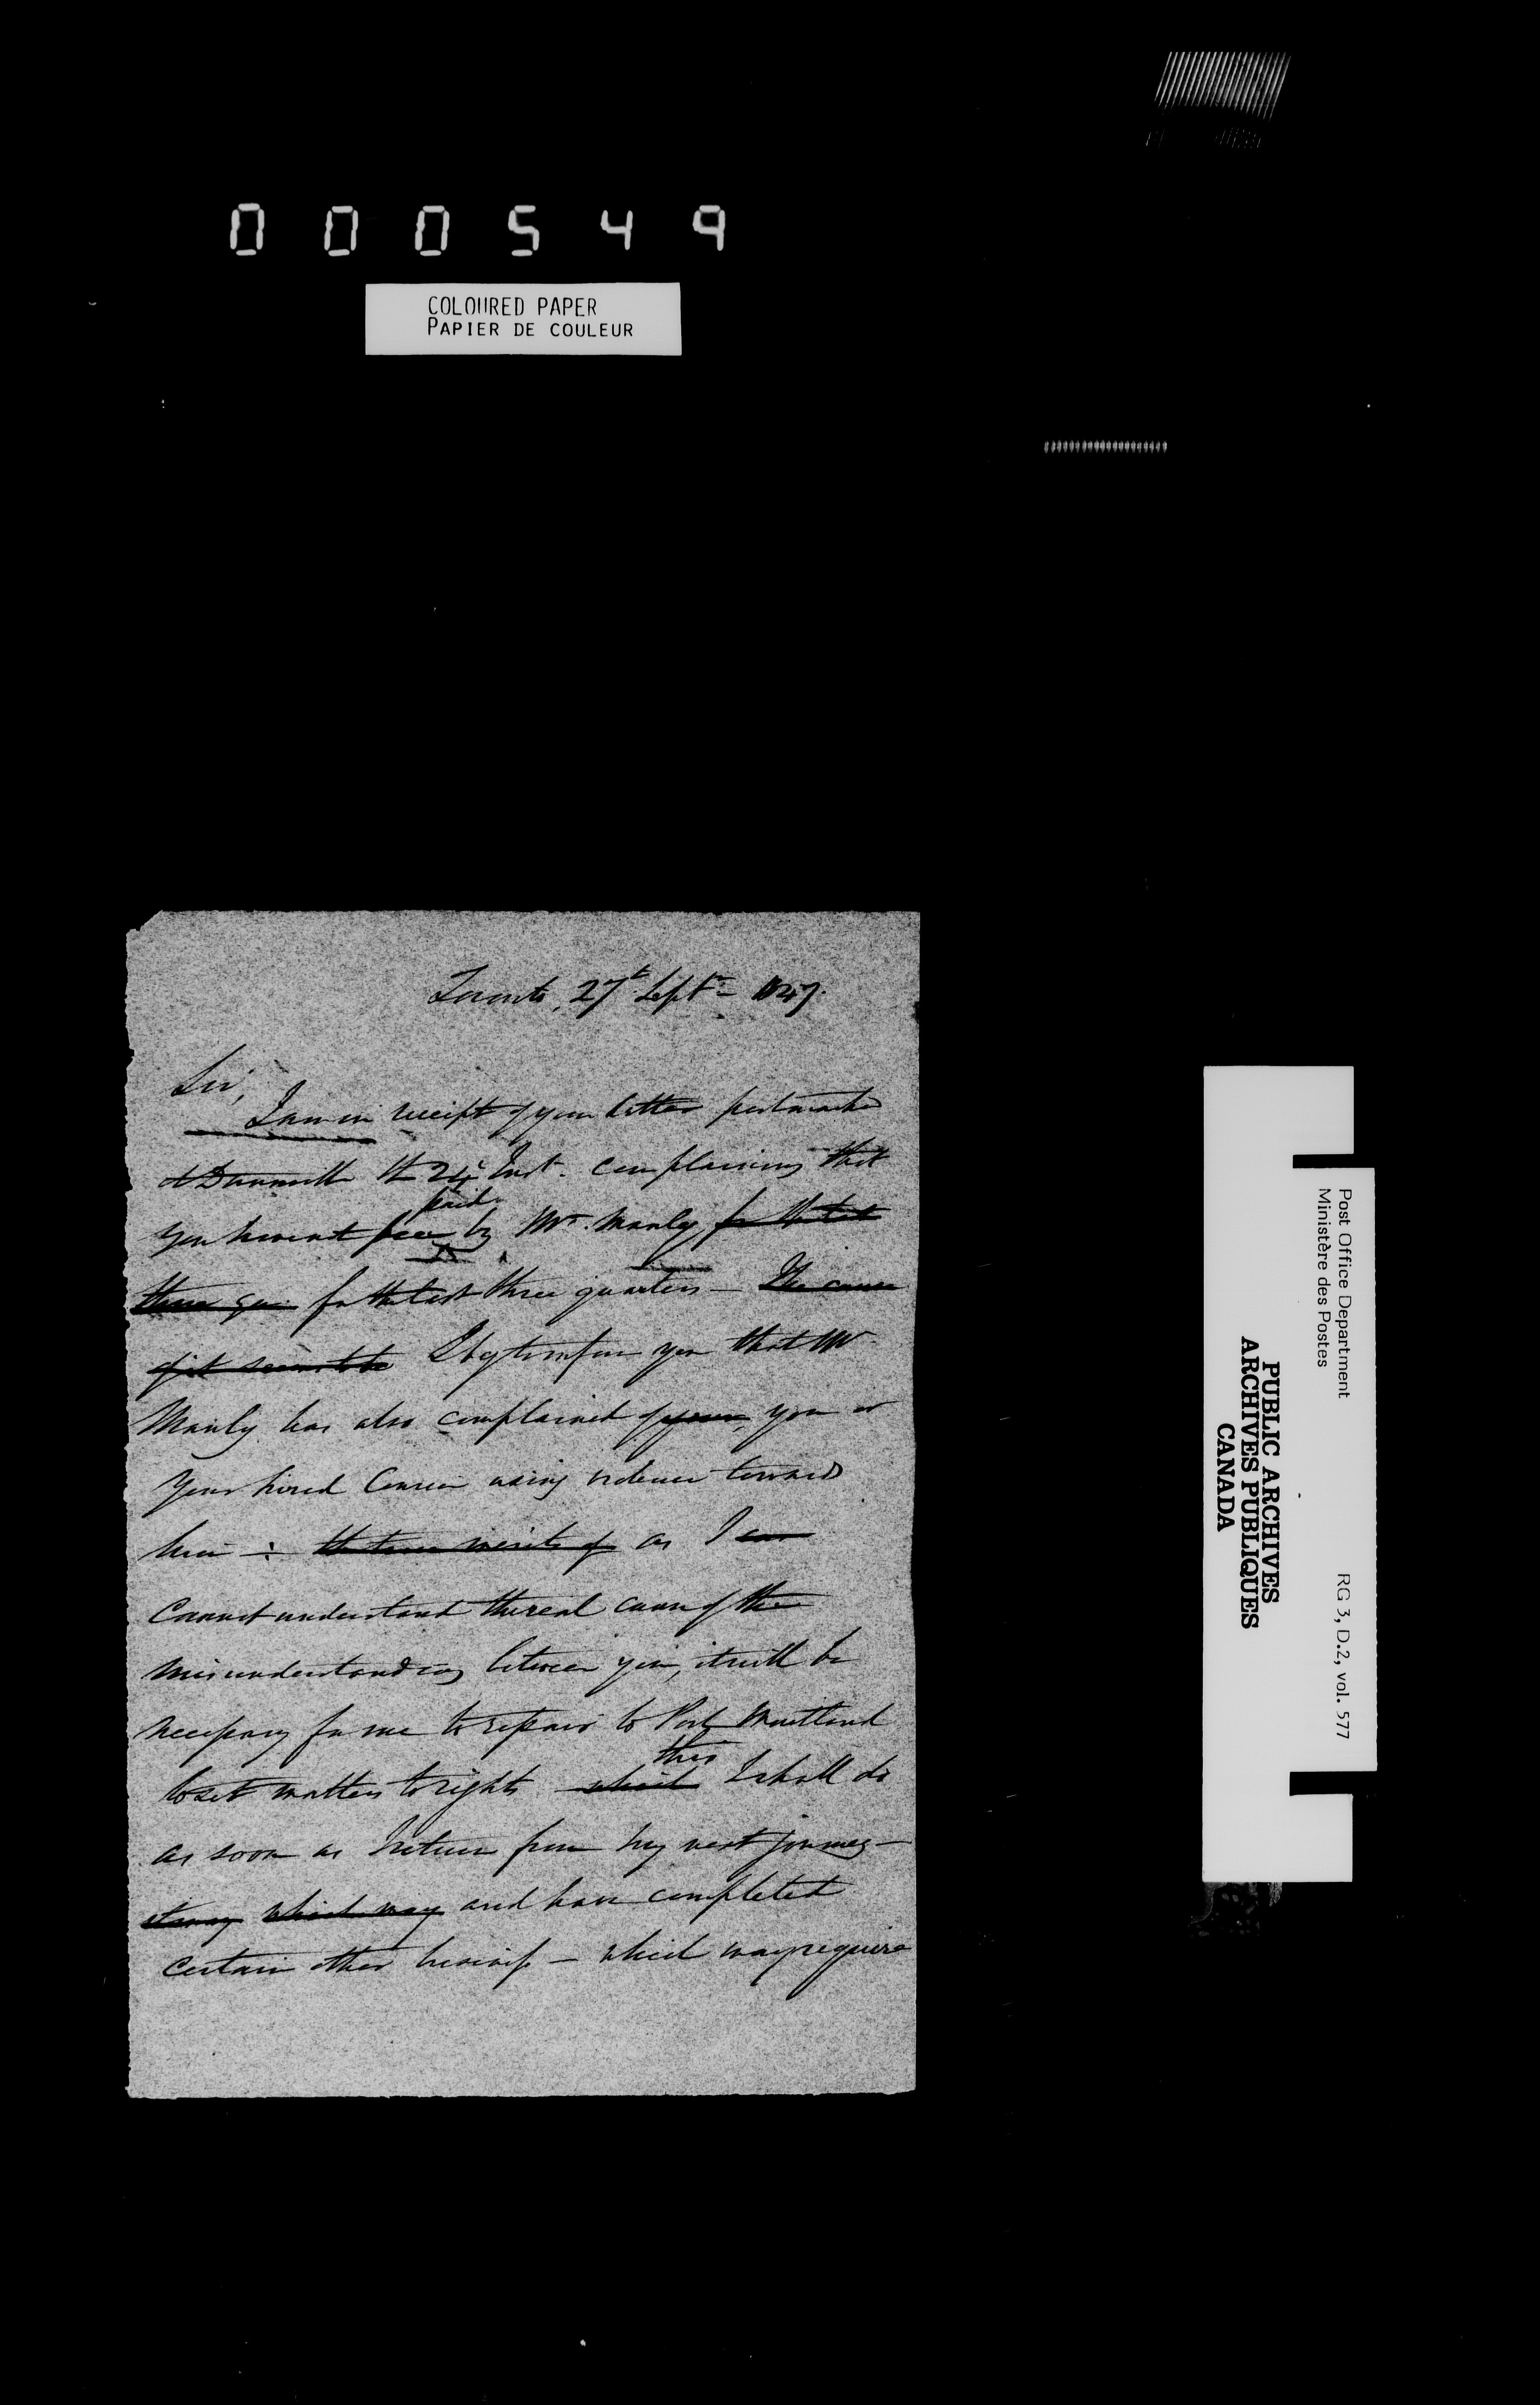 000549
COLOURED PAPER
PAPIER DE COULEUR
Toronto, 27t Septr - 1847.
Sir,
I am in receipt of your letter postmarked
at Dunnville the 24t Inst. complaining that
paid
you have not been by Mr. Manly for the last
three qu for the last three quarters - The cause
of it seems to be I beg to inform you that Mr
Manly has also complained of your, you or
your hired Courier using violence towards
him : the true merits of as I can
Cannot understand the real cause of the
misunderstanding between you, it will be
necessary for me to repair to Port Maitland
this
to set matters to rights which I shall do
as soon as I return from my next journey -
it may which may and have completed
certain other business - which may require
Post Office Department
Ministère des Postes
RG 3, D.2, vol. 577
PUBLIC ARCHIVES
ARCHIVES PUBLIQUES
CANADA